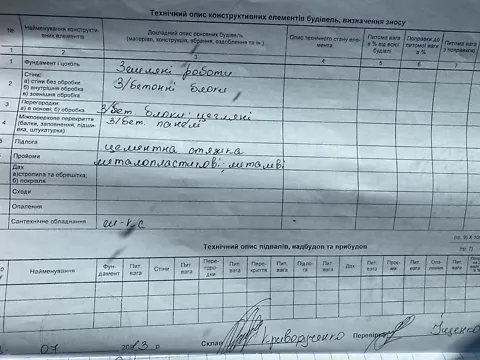 Технічний опис конструктивних елементів будівель, визначення зносу
№ Найменування конструктивних елементів Докладний опис основних будівель (матеріали, конструкція, обрання, оздоблення та ін.) Опис технічного стану елемента Питома вага в % від всієї будівлі Поправки до питомої ваги в % Питома вага з поправкою
1 2 4 5 6 7
1 Фундамент і цоколь Земляні роботи
2 Стіни: а) стіни без обробки б) внутрішня обробка в) зовнішня обробка З/бетонні блоки
3 Перегородки: а) в основі; б) обробка З/бет. блоки; цегляні
4 Міжповерхове перекриття (балки, заповнення, підшивка, штукатурка) З/бет. панелі
Підлога цементна стяжка
Пройоми металопластикові; металеві
Дах а) стропила та обрешітка; б) покрівля
Сходи
Опалення
Сантехнічне обладнання
Технічний опис підвалів, надбудов та прибудов
Найменування Фундамент Пит. вага Стіни Пит. вага Перегородки Пит. вага Перекриття Пит. вага Підлога Пит. вага Дах Пит. вага Пройми Пит. вага Опалення Пит. вага
07 2013 р Склав Криворученко Перевірив Яценко